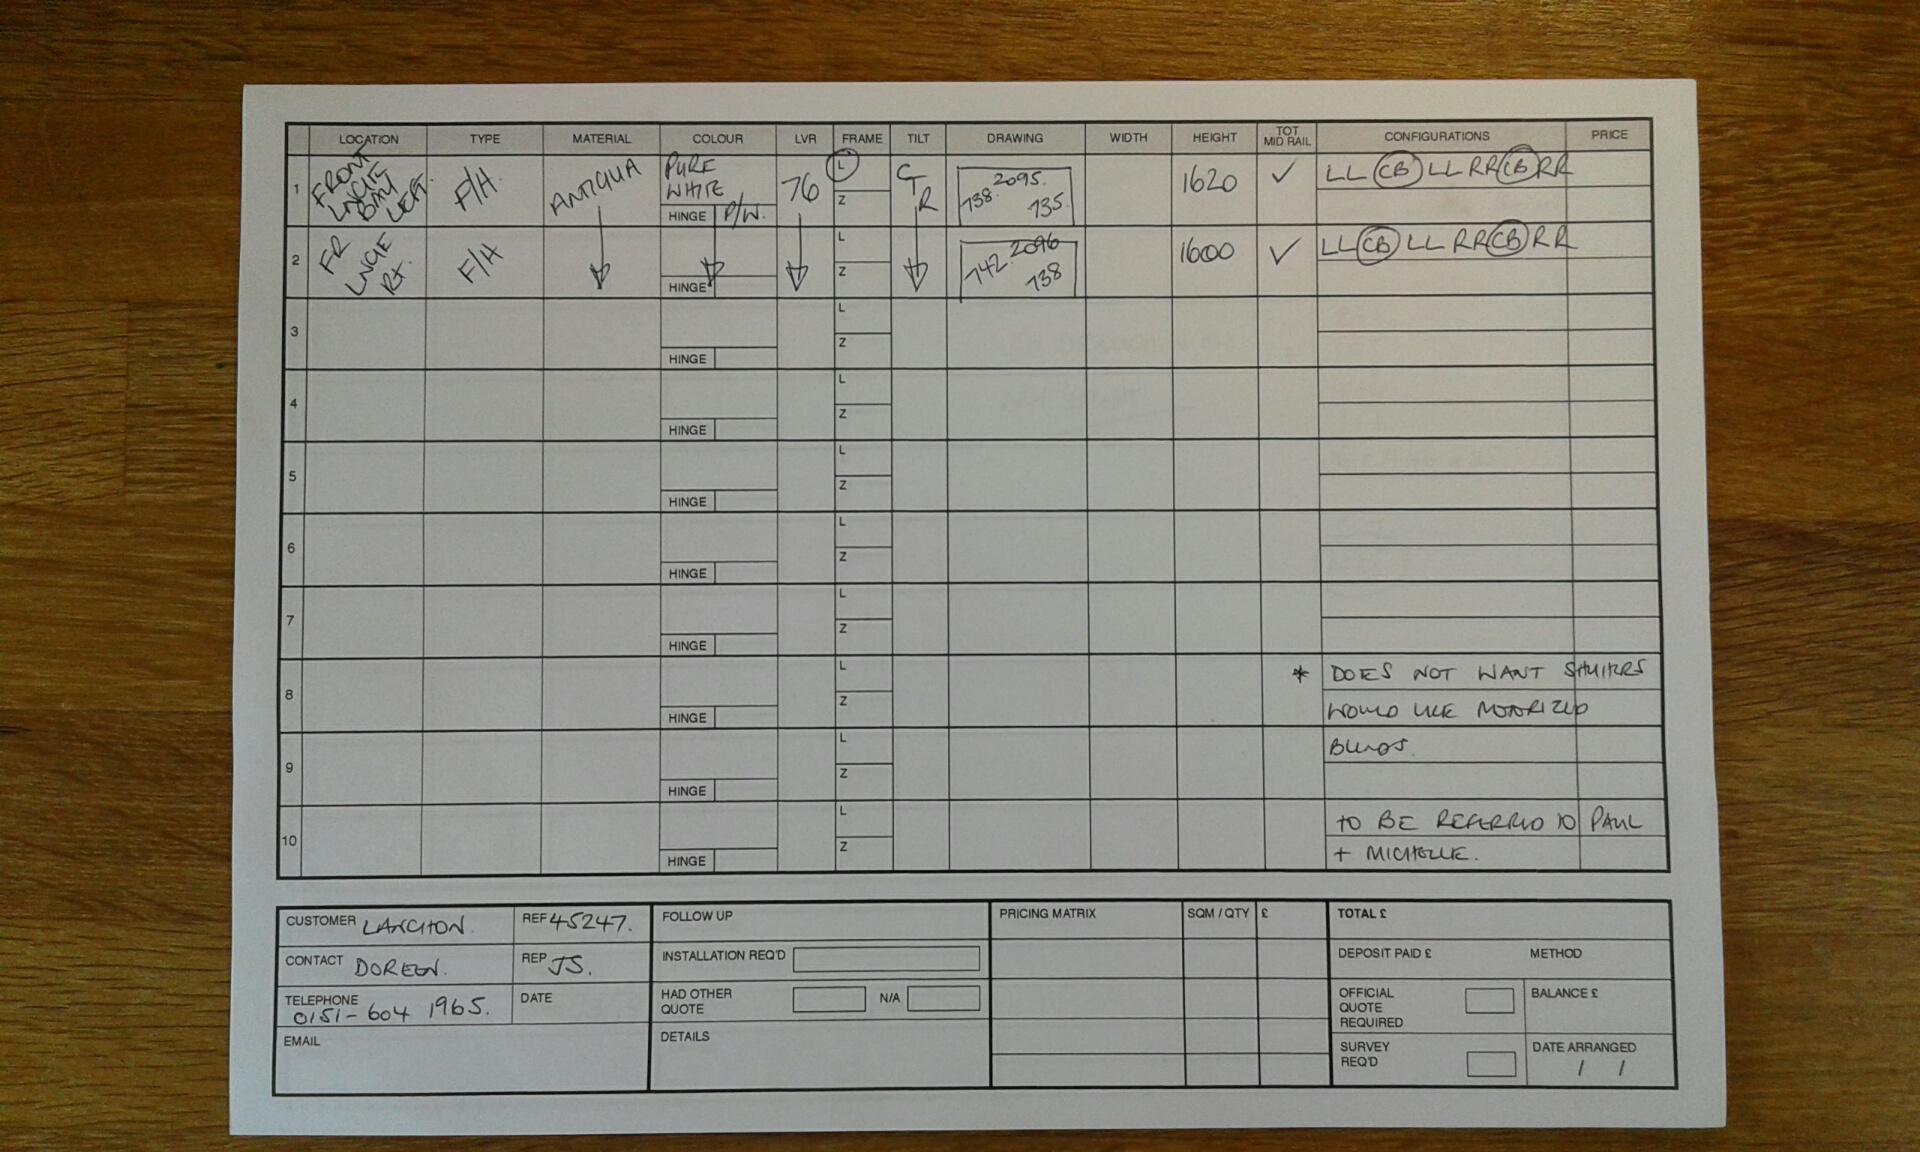 LOCATION TYPE MATERIAL COLOUR LVR FRAME TILT DRAWING WIDTH HEIGHT TOT MID RAIL CONFIGURATIONS PRICE
1 FRONT LNGE BAY LEFT. F/H. ANTIGUA PURE WHITE HINGE P/W. 76 L Z CTR 2095. 738. 735. 1620 ✓ LL CB LL RR CB RR
2 FR LNGE RT. F/H HINGE L Z 2096 742. 738 1600 ✓ LL CB LL RR CB RR
3 HINGE L Z
4 HINGE L Z
5 HINGE L Z
6 HINGE L Z
7 HINGE L Z
8 HINGE L Z * DOES NOT WANT SHUTTERS
WOULD LIKE MOTORIZED
9 HINGE L Z BLINDS.
10 HINGE L Z TO BE REFERRED TO PAUL
+ MICHELLE.
CUSTOMER LANGTON. REF 45247.
CONTACT DOREEN. REP JS.
TELEPHONE 0151-604 1965. DATE
EMAIL
FOLLOW UP
INSTALLATION REQ'D
HAD OTHER QUOTE N/A
DETAILS
PRICING MATRIX SQM / QTY £
TOTAL £
DEPOSIT PAID £ METHOD
OFFICIAL QUOTE REQUIRED BALANCE £
SURVEY REQ'D DATE ARRANGED
/ /